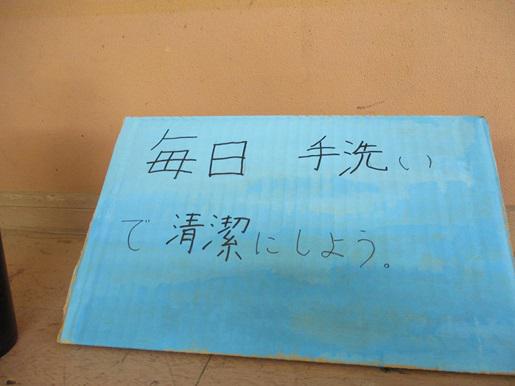 毎日 手洗い
で清潔にしよう。